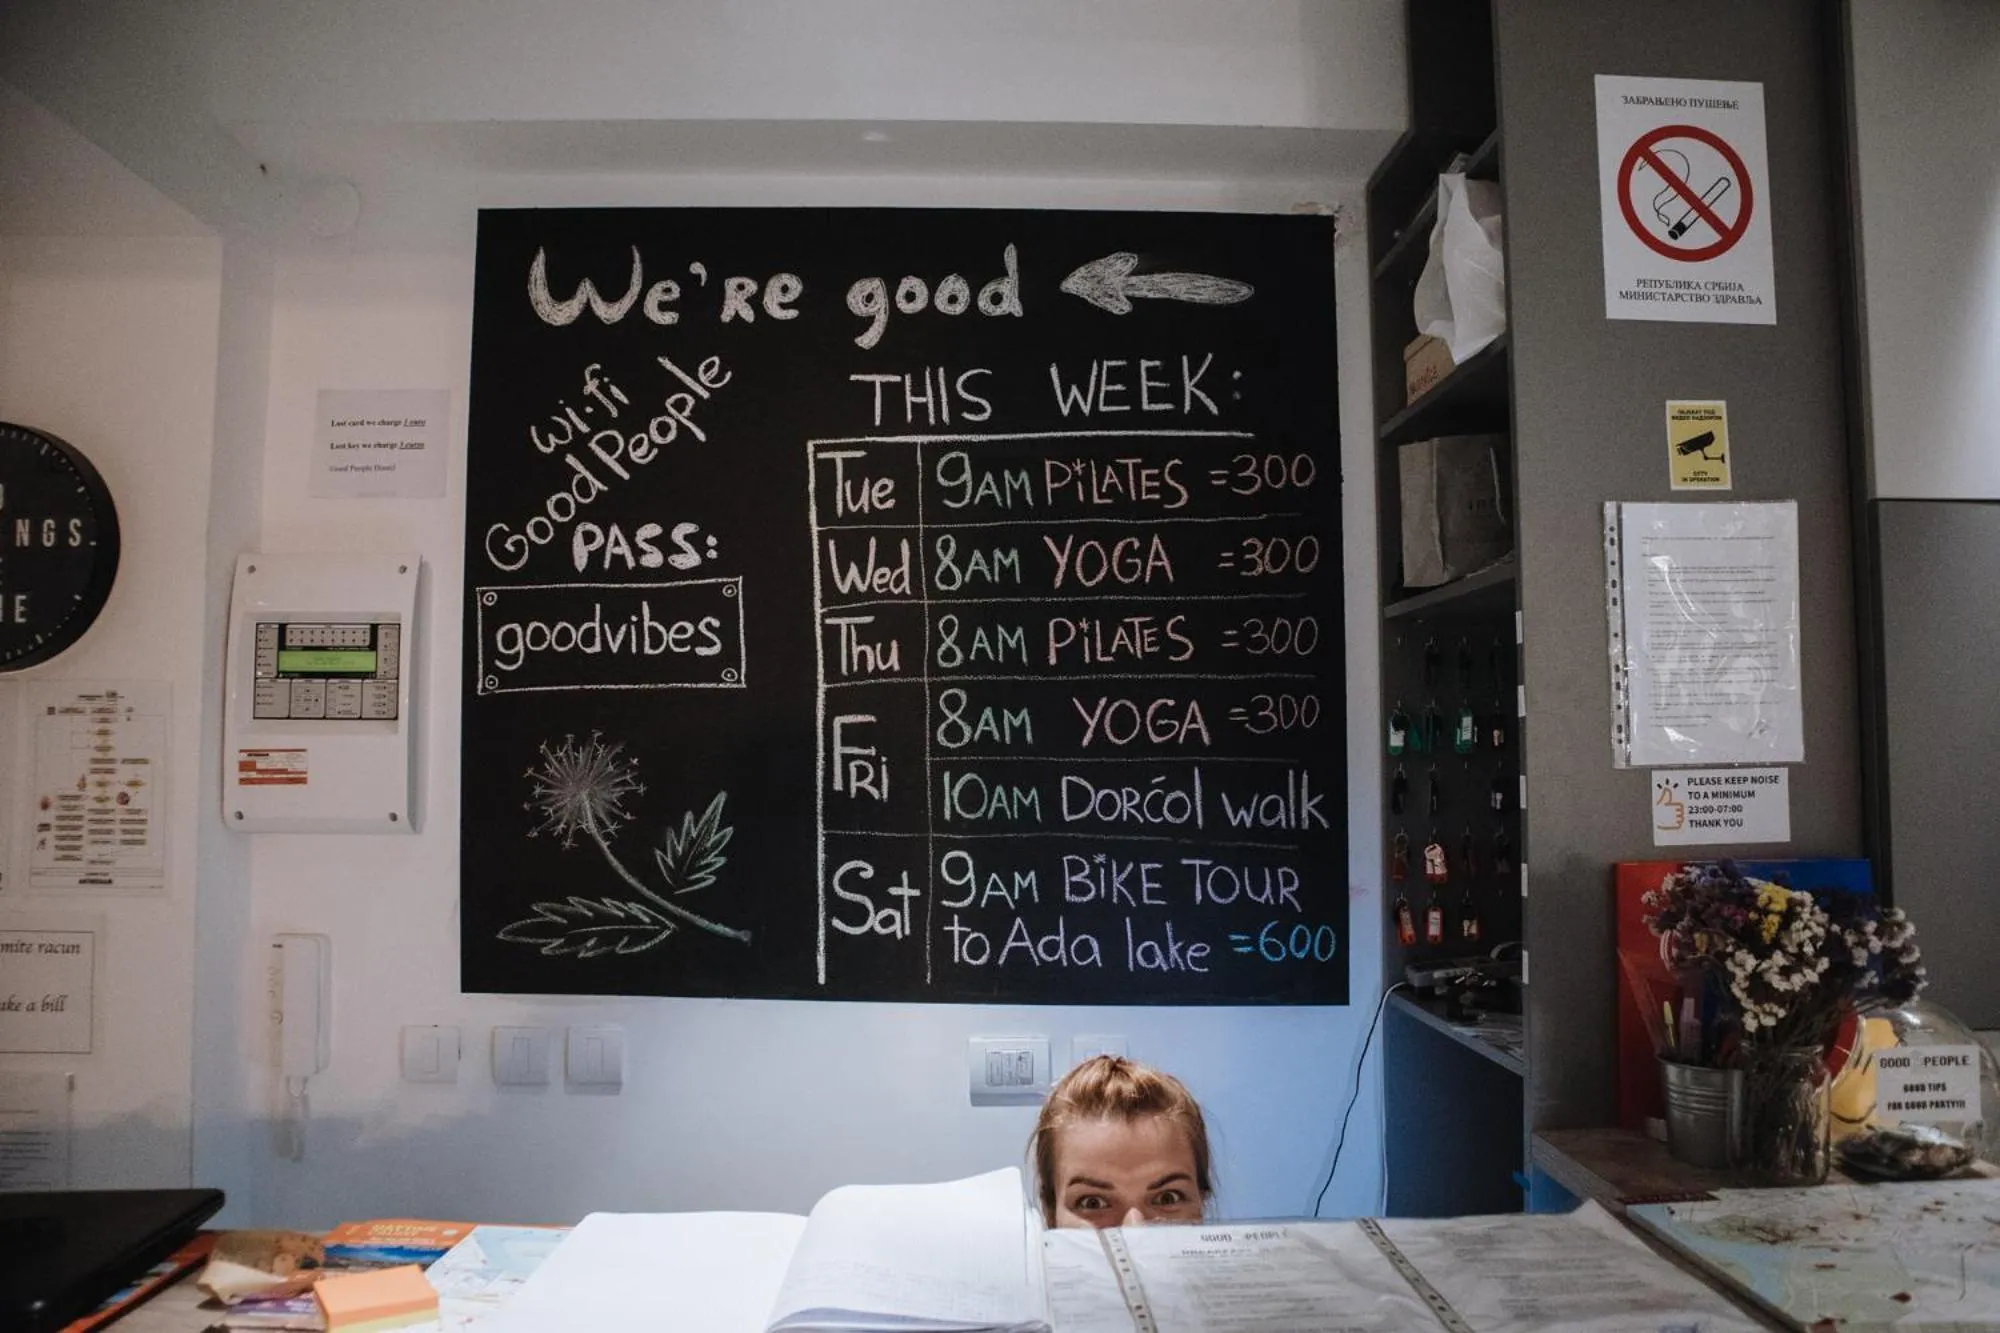 We're good
wi-fi
GoodPeople
PASS:
goodvibes
THIS WEEK:
Tue 9AM PiLATES =300
Wed 8AM YOGA =300
Thu 8AM PiLATES =300
FRi 8AM YOGA =300
10AM DORćol walk
Sat 9AM BiKE TOUR
to Ada lake =600
Lost card we charge 1 euro
Lost key we charge 3 euros
Good People Hostel
NGS.
mite racun
ake a bill
ЗАБРАЊЕНО ПУШЕЊЕ
РЕПУБЛИКА СРБИЈА
МИНИСТАРСТВО ЗДРАВЉА
ОБЈЕКАТ ПОД
ВИДЕО НАДЗОРОМ
CCTV
IN OPERATION
PLEASE KEEP NOISE
TO A MINIMUM
23:00-07:00
THANK YOU
GOOD PEOPLE
GOOD TIPS
FOR GOOD PARTY!!!
GOOD PEOPLE